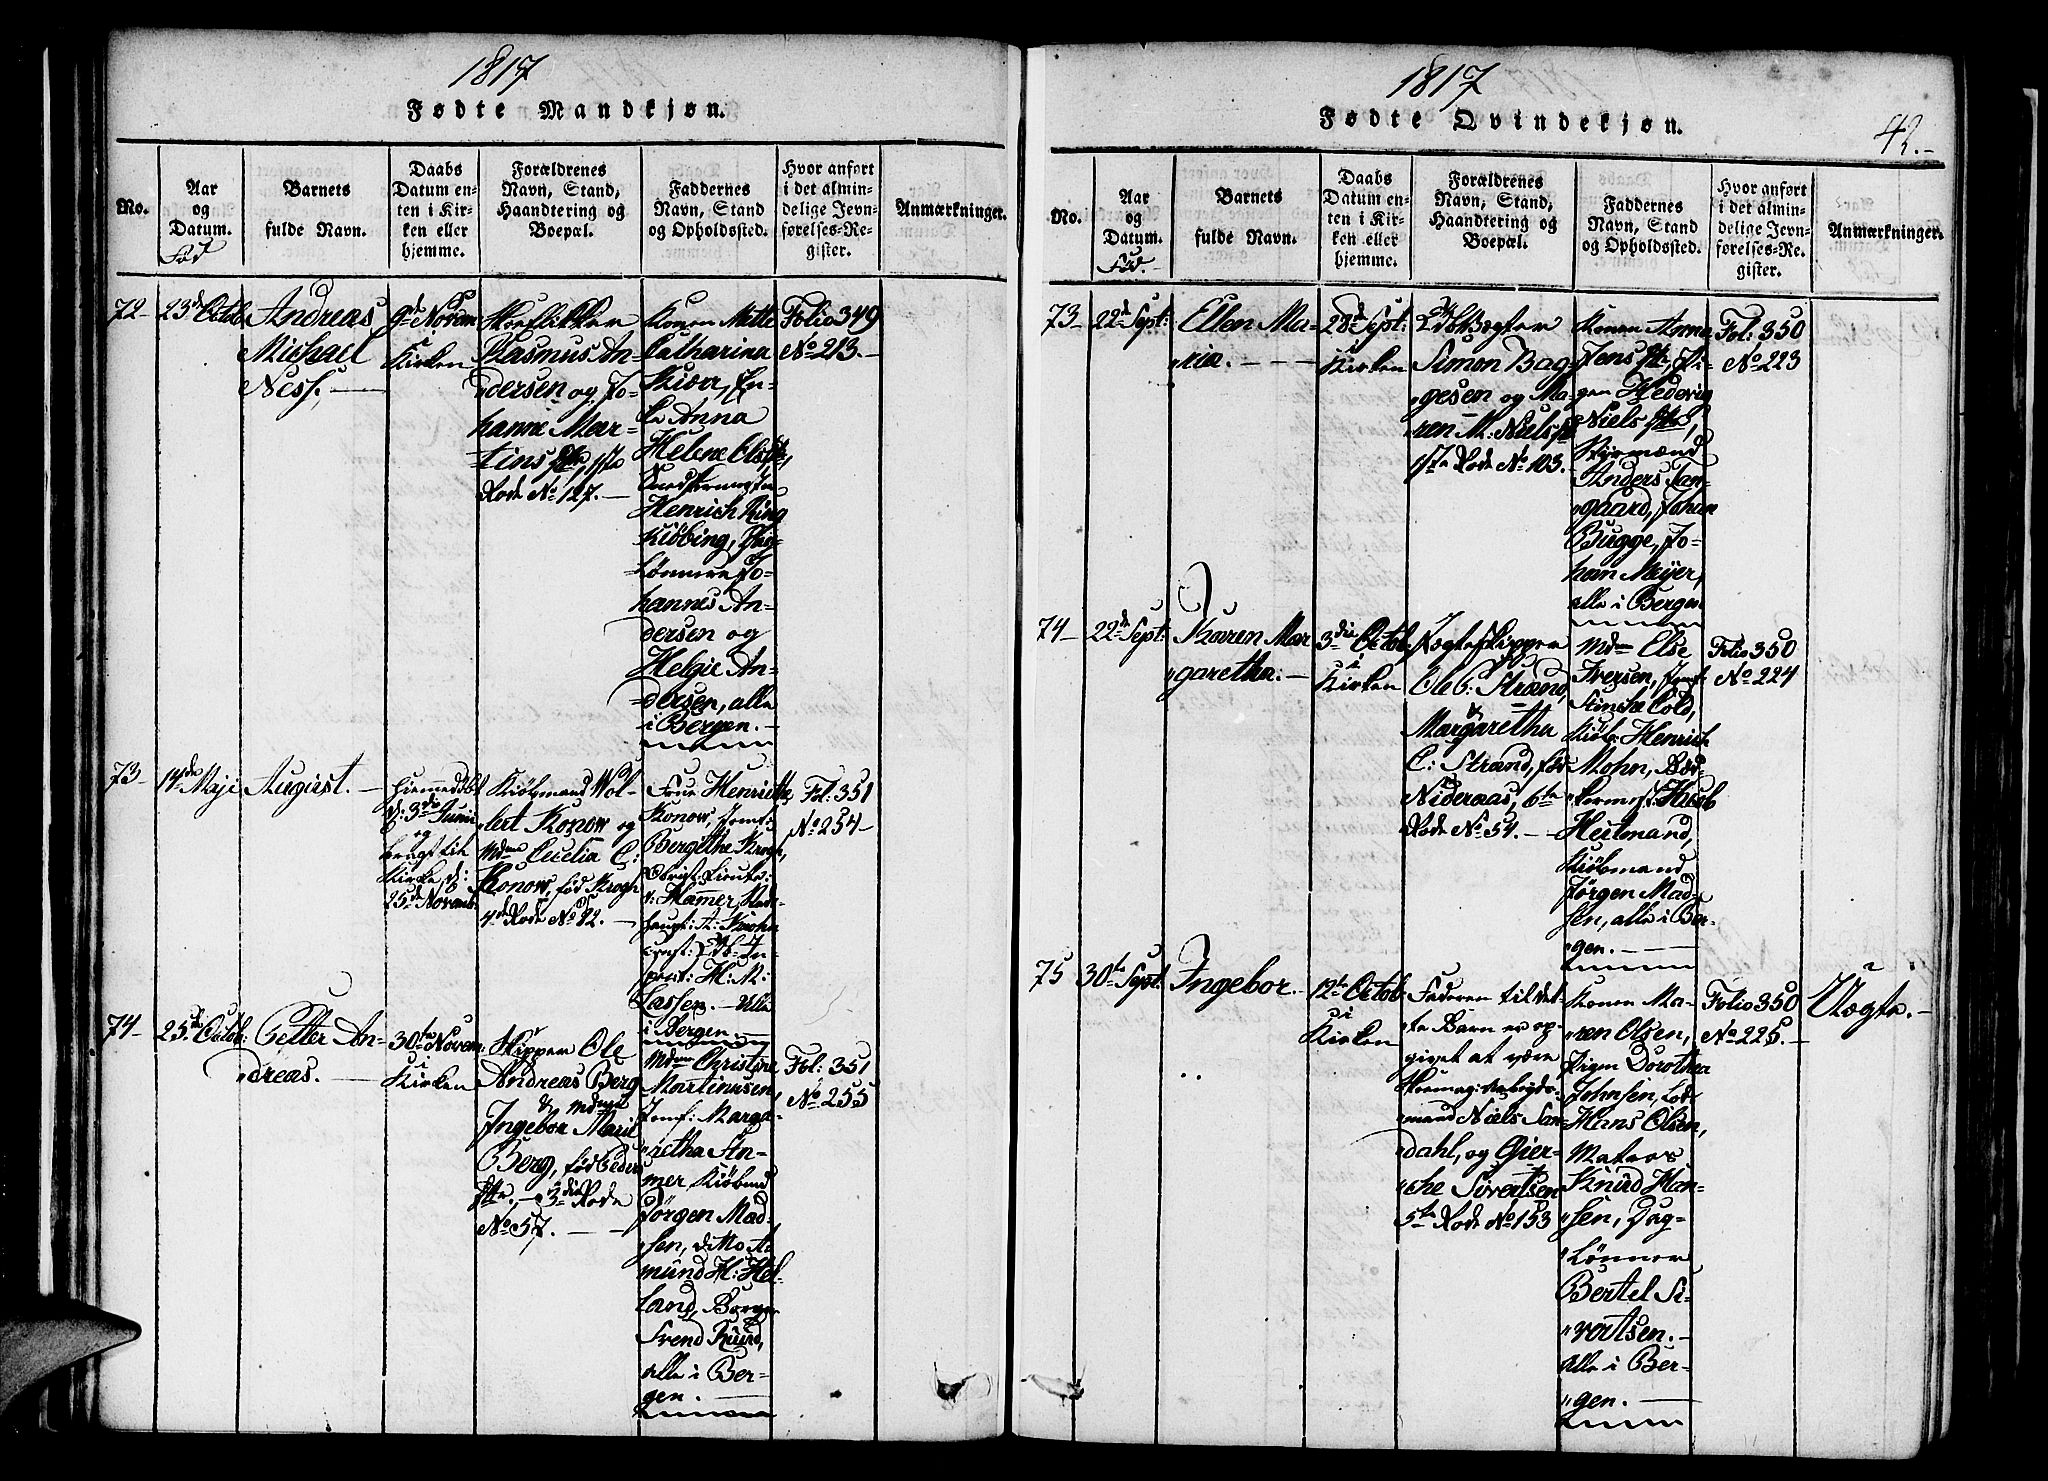 1817
Fødte Mandkjøn.
No.
Aar
og
Datum.
Fød
Barnets
fulde Navn.
Daabs
Datum en-
ten i Kir-
ken eller
hjemme.
Forældrenes
Navn, Stand,
Haandtering og
Boepæl.
Faddernes
Navn, Stand
og Opholdssted.
Hvor anført
i det almin-
delige Jevn-
førelses-Re-
gister.
Anmærkninger.
72-
23de Octob:
Andreas
Michael
Ness. —
9de Novem
i
Kirken
Skoeflikker
Rasmus An-
dersen og Jo-
hanne Mar-
tins Dtr, 1ste
Rode No 127. —
Konen Mette
Catharina
Kiær, En-
ke Anna
Helene Ols Dtr,
Henrich Ring
kiöbing, Dag-
lønnere Jo-
hannes An-
dersen og
Helgie An-
dersen, alle
i Bergen. —
Folio 349
No 213. —
73-
14de Maji
August. —
hiemmedöbt
d: 3die Junii
og
bragt til
Kirke d:
25de Novemb.
Kiöbmand Wol-
lert Konow og
Mdme Cecelia C:
Konow, fød Krogh
4de Rode No 82. —
Frue Henrietta
Konow, Jomf:
Bergithe Krogh,
v: Hamer,
A: Krohn
H: M:
Lassen. — Alle
i Bergen. —
Fol: 351
No 254 —
74-
25de Octob:
Petter An-
dreas. —
30te Novem:
i
Kirken
Skipper Ole
Andreas Berg
& Mdme
Ingebor Marie
Berg, fød Peders
Dtr. — 3die Rode
No 57. —
Mdme Christine
Martinusen,
Jomf: Marga-
retha An-
mer Kiöbmd
Jörgen Mad-
sen, ditto A-
mund H: Hel-
land, Borger
Svend Knud,
alle i Ber-
gen. —
Fol: 351
No 255
1817
Fødte Qvindekjøn.
42. -
No.
Aar
og
Datum.
Fød. -
Barnets
fulde Navn.
Daabs
Datum en-
ten i Kir-
ken eller
hjemme.
Forældrenes
Navn, Stand,
Haandtering og
Boepæl.
Faddernes
Navn, Stand
og Opholdssted.
Hvor anført
i det almin-
delige Jevn-
førelses-Re-
gister.
Anmærkninger.
73-
22de Sept:
Ellen Ma-
ria. —
28de Sept:
i
Kirken
Simon Bag-
gesen og Ma-
ren M: Niels Dtr
17de Rode No 103. —
Konen Anna
Jens Dtr, Pi-
gen Hedevig
Niels Dtr,
Styrmænd
Anders Tan-
gaard, Johan
Bugge, Jo-
han Meyer,
alle i Bergen
Fol: 350
No 223
74-
22de Sept:
Karen Mar
garetha. —
3die Octob:
i
Kirken
Jagteskipper
Ole C: Strand,
&
Margaretha
C: Strand, fød
Nideraas, 6te
Rode No 54. —
Mdme Else
Iversen, Jomf:
Stinche Cold,
Kiöb: Henrich
Mohn, Bød-
kermest: Husb
Hestmand,
Kiöbmand
Jørgen Mad-
sen, alle i Ber-
gen. —
Folio 350
No 224
75
30te Sept.
Ingebor. —
12te Octob:
i
Kirken
Faderen til det-
te Barn er op-
givet at være
Skomag: Arbeyds-
mand Niels San-
dahl, og Gier-
che Sivertsen
5te Rode No 153
Konen Ma-
ren Olsen,
Pigen Dorothea
Johnsen, Lods
Hans Olsen,
Matros
Knud Han-
sen, Dag-
Lønner
Bertel Si-
vertsen. —
alle i Ber-
gen. —
Folio 350
No 225. —
Uægte. —